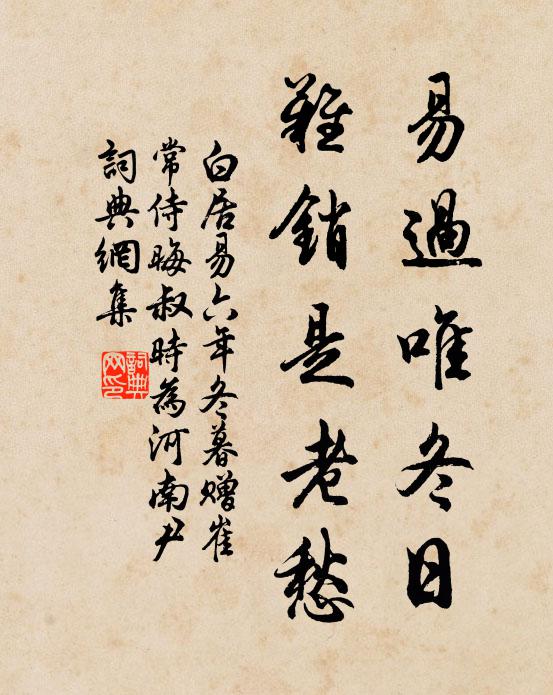 易過唯冬日
難銷是老愁
白居易六年冬暮贈崔
常侍晦叔時為河南尹
詞典網集
詞典網印